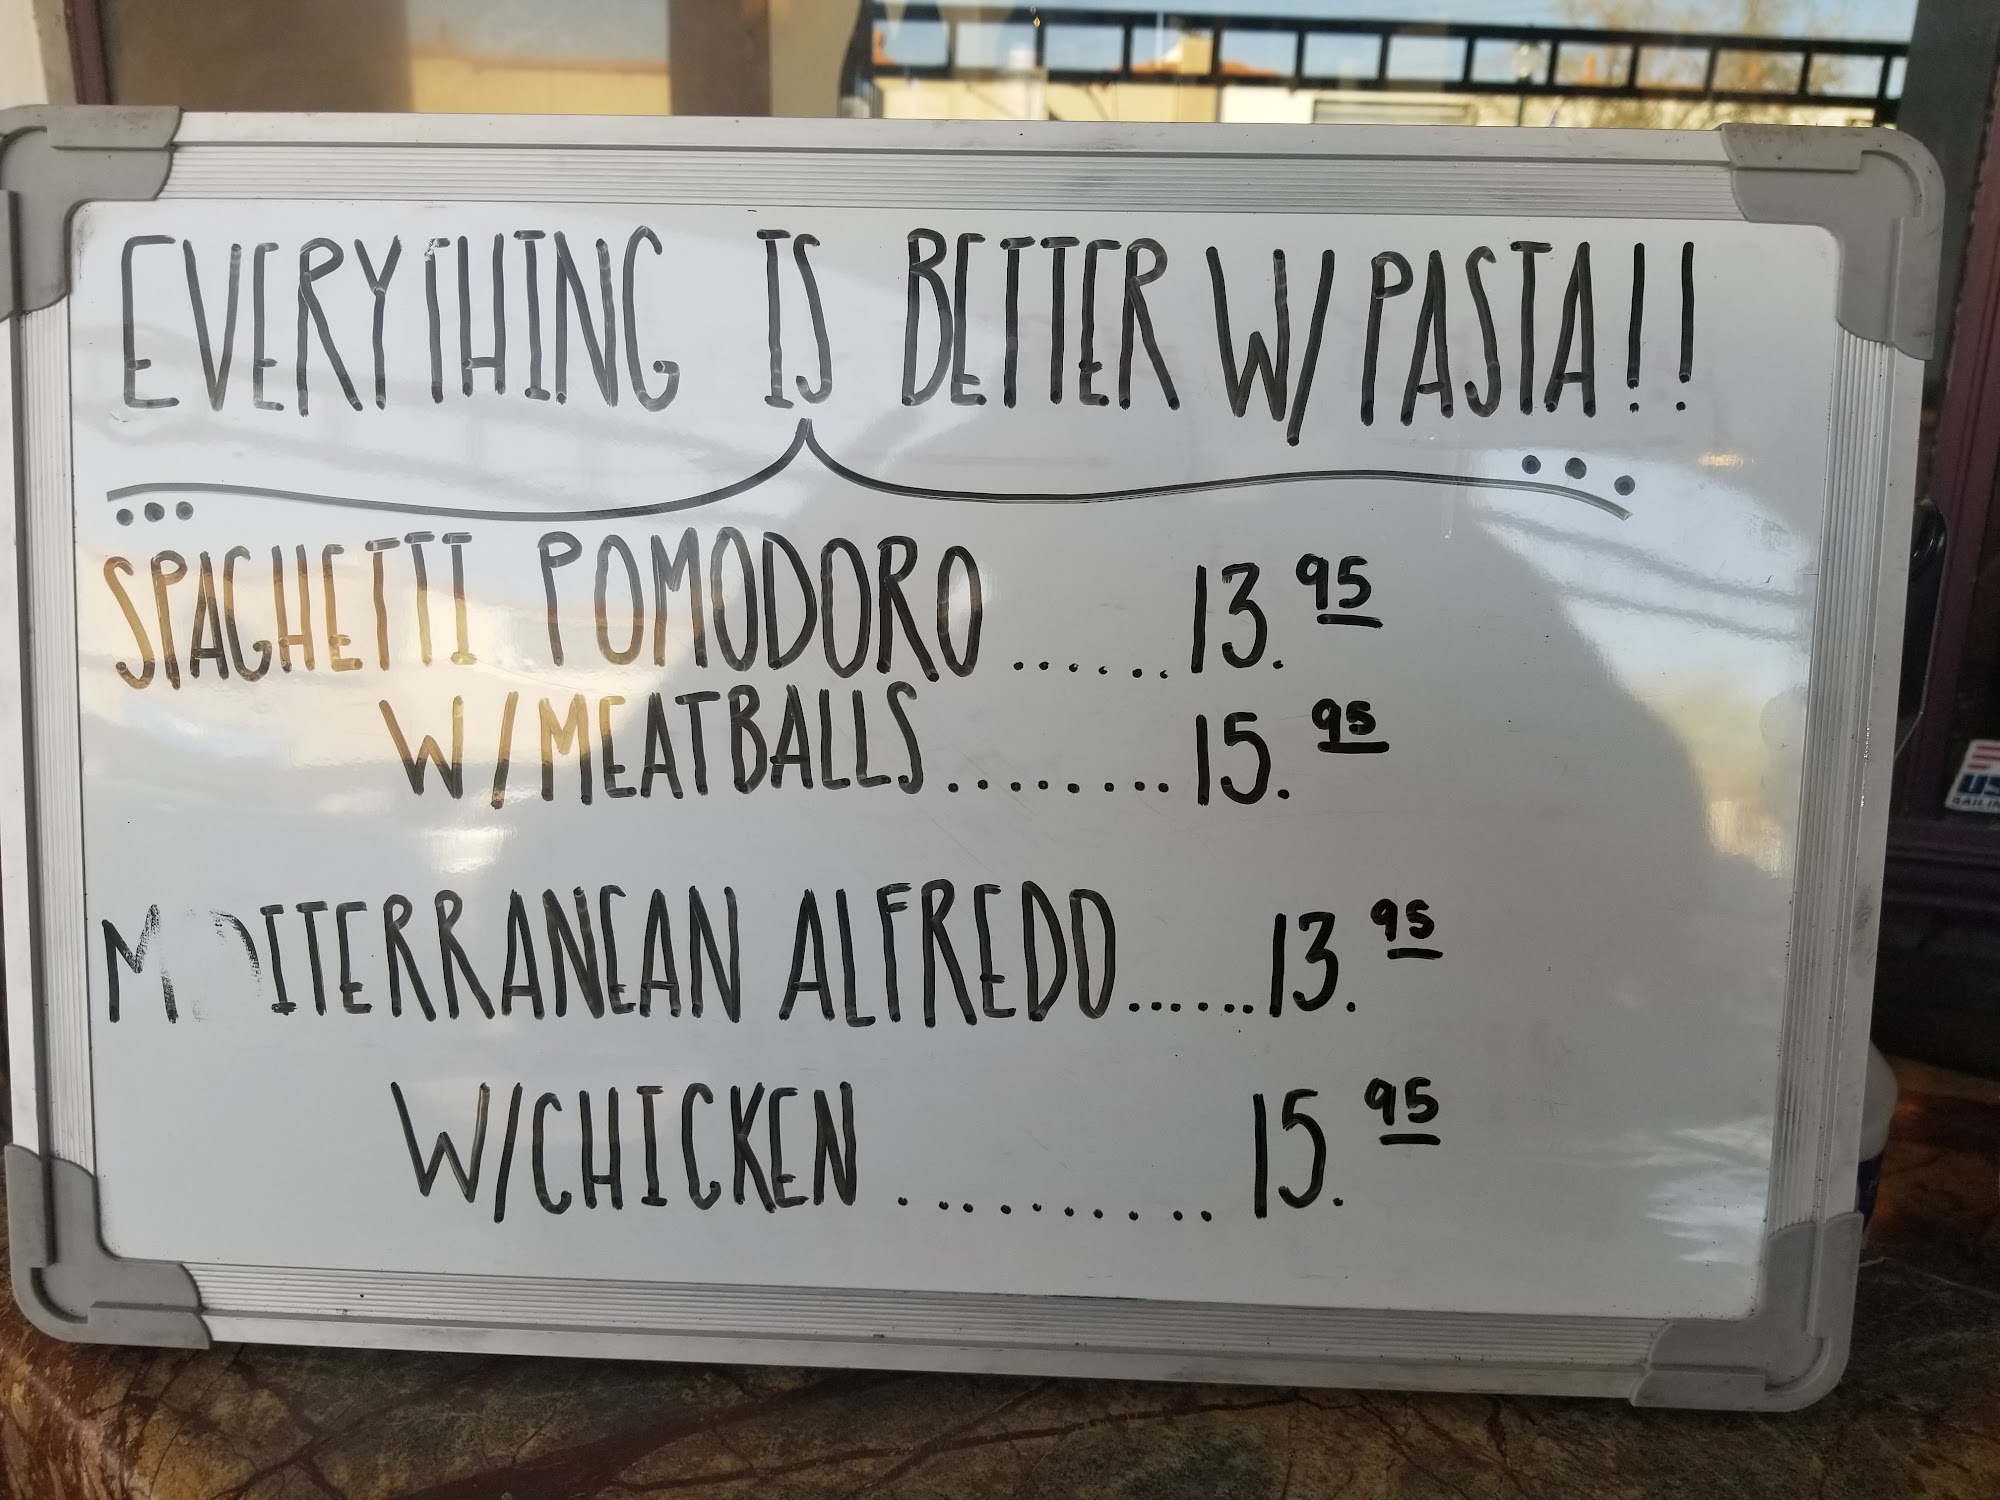 EVERYTHING IS BETTER W/PASTA!!
SPAGHETTI POMODORO ...... 13.95
W/MEATBALLS ........ 15.95
M DITERRANEAN ALFREDO ...... 13.95
W/CHICKEN .......... 15.95
US
SAILIN